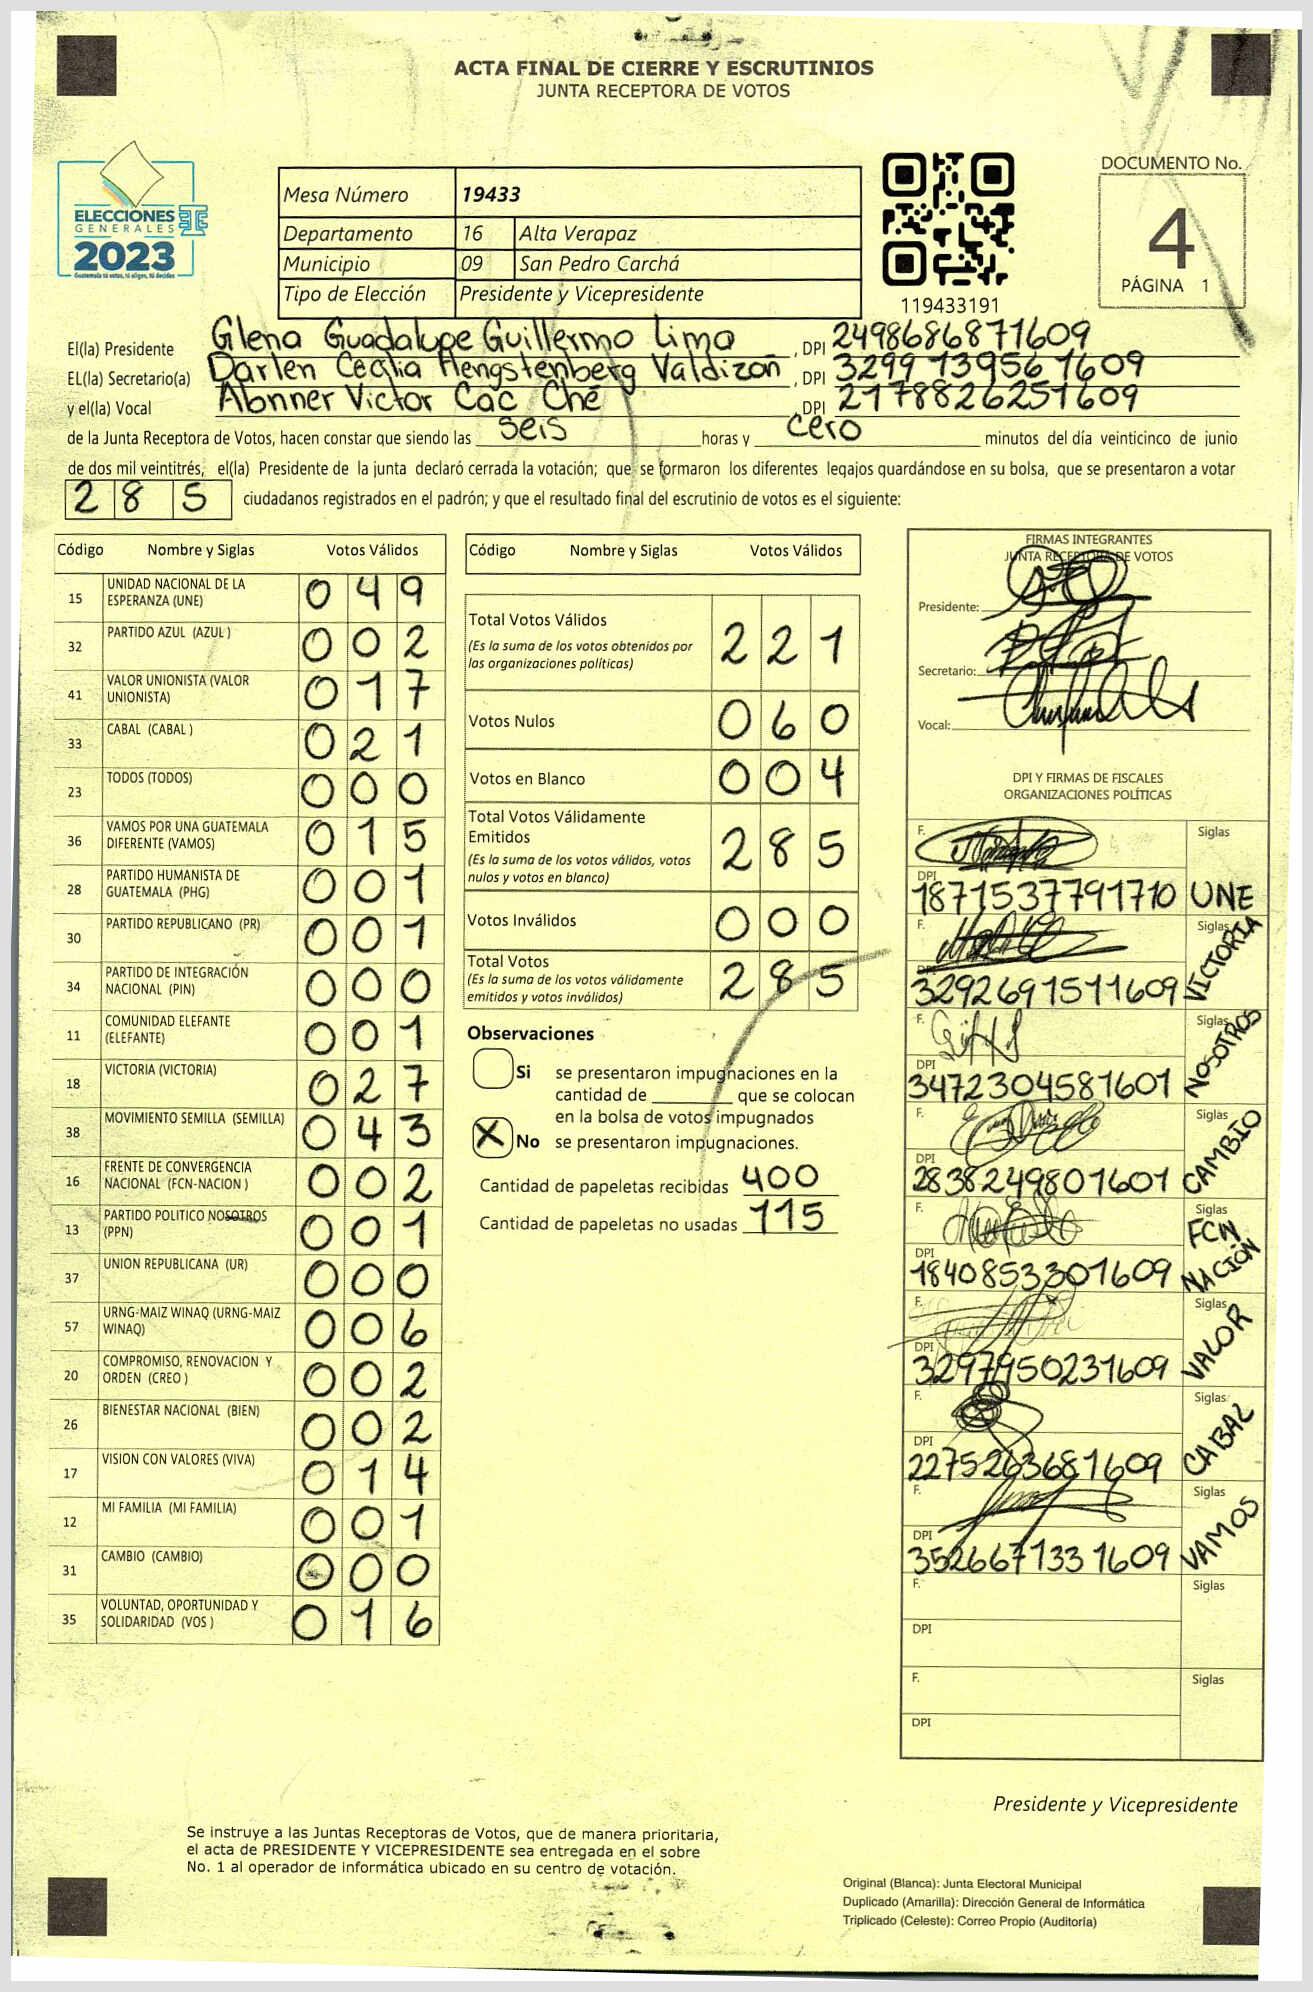 ACTA FINAL DE CIERRE Y ESCRUTINIOS
JUNTA RECEPTORA DE VOTOS
ELECCIONES
GENERALES
2023
Guatemala tú votas, tú eliges, tú decides
Mesa Número 19433
Departamento 16 Alta Verapaz
Municipio 09 San Pedro Carchá
Tipo de Elección Presidente y Vicepresidente
119433191
DOCUMENTO No.
4
PÁGINA 1
El(la) Presidente Glena Guadalupe Guillermo Lima, DPI 2498686871609
EL(la) Secretario(a) Darlen Cecilia Hengstenberg Valdizón, DPI 3299139561609
y el(la) Vocal Abnner Victor Cac Ché DPI 2178826251609
de la Junta Receptora de Votos, hacen constar que siendo las seis horas y cero minutos del día veinticinco de junio
de dos mil veintitrés, el(la) Presidente de la junta declaró cerrada la votación; que se formaron los diferentes legajos guardándose en su bolsa, que se presentaron a votar
285 ciudadanos registrados en el padrón; y que el resultado final del escrutinio de votos es el siguiente:
Código Nombre y Siglas Votos Válidos
15 UNIDAD NACIONAL DE LA ESPERANZA (UNE) 049
32 PARTIDO AZUL (AZUL ) 002
41 VALOR UNIONISTA (VALOR UNIONISTA) 017
33 CABAL (CABAL ) 021
23 TODOS (TODOS) 000
36 VAMOS POR UNA GUATEMALA DIFERENTE (VAMOS) 015
28 PARTIDO HUMANISTA DE GUATEMALA (PHG) 001
30 PARTIDO REPUBLICANO (PR) 001
34 PARTIDO DE INTEGRACIÓN NACIONAL (PIN) 000
11 COMUNIDAD ELEFANTE (ELEFANTE) 001
18 VICTORIA (VICTORIA) 027
38 MOVIMIENTO SEMILLA (SEMILLA) 043
16 FRENTE DE CONVERGENCIA NACIONAL (FCN-NACION ) 002
13 PARTIDO POLITICO NOSOTROS (PPN) 001
37 UNION REPUBLICANA (UR) 000
57 URNG-MAIZ WINAQ (URNG-MAIZ WINAQ) 006
20 COMPROMISO, RENOVACION Y ORDEN (CREO ) 002
26 BIENESTAR NACIONAL (BIEN) 002
17 VISION CON VALORES (VIVA) 014
12 MI FAMILIA (MI FAMILIA) 001
31 CAMBIO (CAMBIO) 000
35 VOLUNTAD, OPORTUNIDAD Y SOLIDARIDAD (VOS ) 016
Código Nombre y Siglas Votos Válidos
Total Votos Válidos 221
(Es la suma de los votos obtenidos por
las organizaciones políticas)
Votos Nulos 060
Votos en Blanco 004
Total Votos Válidamente
Emitidos 285
(Es la suma de los votos válidos, votos
nulos y votos en blanco)
Votos Inválidos 000
Total Votos 285
(Es la suma de los votos válidamente
emitidos y votos inválidos)
Observaciones
Si se presentaron impugnaciones en la
cantidad de ________ que se colocan
en la bolsa de votos impugnados
X No se presentaron impugnaciones.
Cantidad de papeletas recibidas 400
Cantidad de papeletas no usadas 115
FIRMAS INTEGRANTES
JUNTA RECEPTORA DE VOTOS
Presidente:
Secretario:
Vocal:
DPI Y FIRMAS DE FISCALES
ORGANIZACIONES POLÍTICAS
F. Siglas
DPI
1871537791710 UNE
F. Siglas
DPI
3292691511609 VICTORIA
F. Siglas
DPI
3472304581601 NOSOTROS
F. Siglas
DPI
2838249801601 CAMBIO
F. Siglas
DPI
1840853301609 FCN NACIÓN
F. Siglas
DPI
3297950231609 VALOR
F. Siglas
DPI
2275263681609 CABAL
F. Siglas
DPI
3526671331609 VAMOS
F. Siglas
DPI
F. Siglas
DPI
Presidente y Vicepresidente
Se instruye a las Juntas Receptoras de Votos, que de manera prioritaria,
el acta de PRESIDENTE Y VICEPRESIDENTE sea entregada en el sobre
No. 1 al operador de informática ubicado en su centro de votación.
Original (Blanca): Junta Electoral Municipal
Duplicado (Amarilla): Dirección General de Informática
Triplicado (Celeste): Correo Propio (Auditoría)